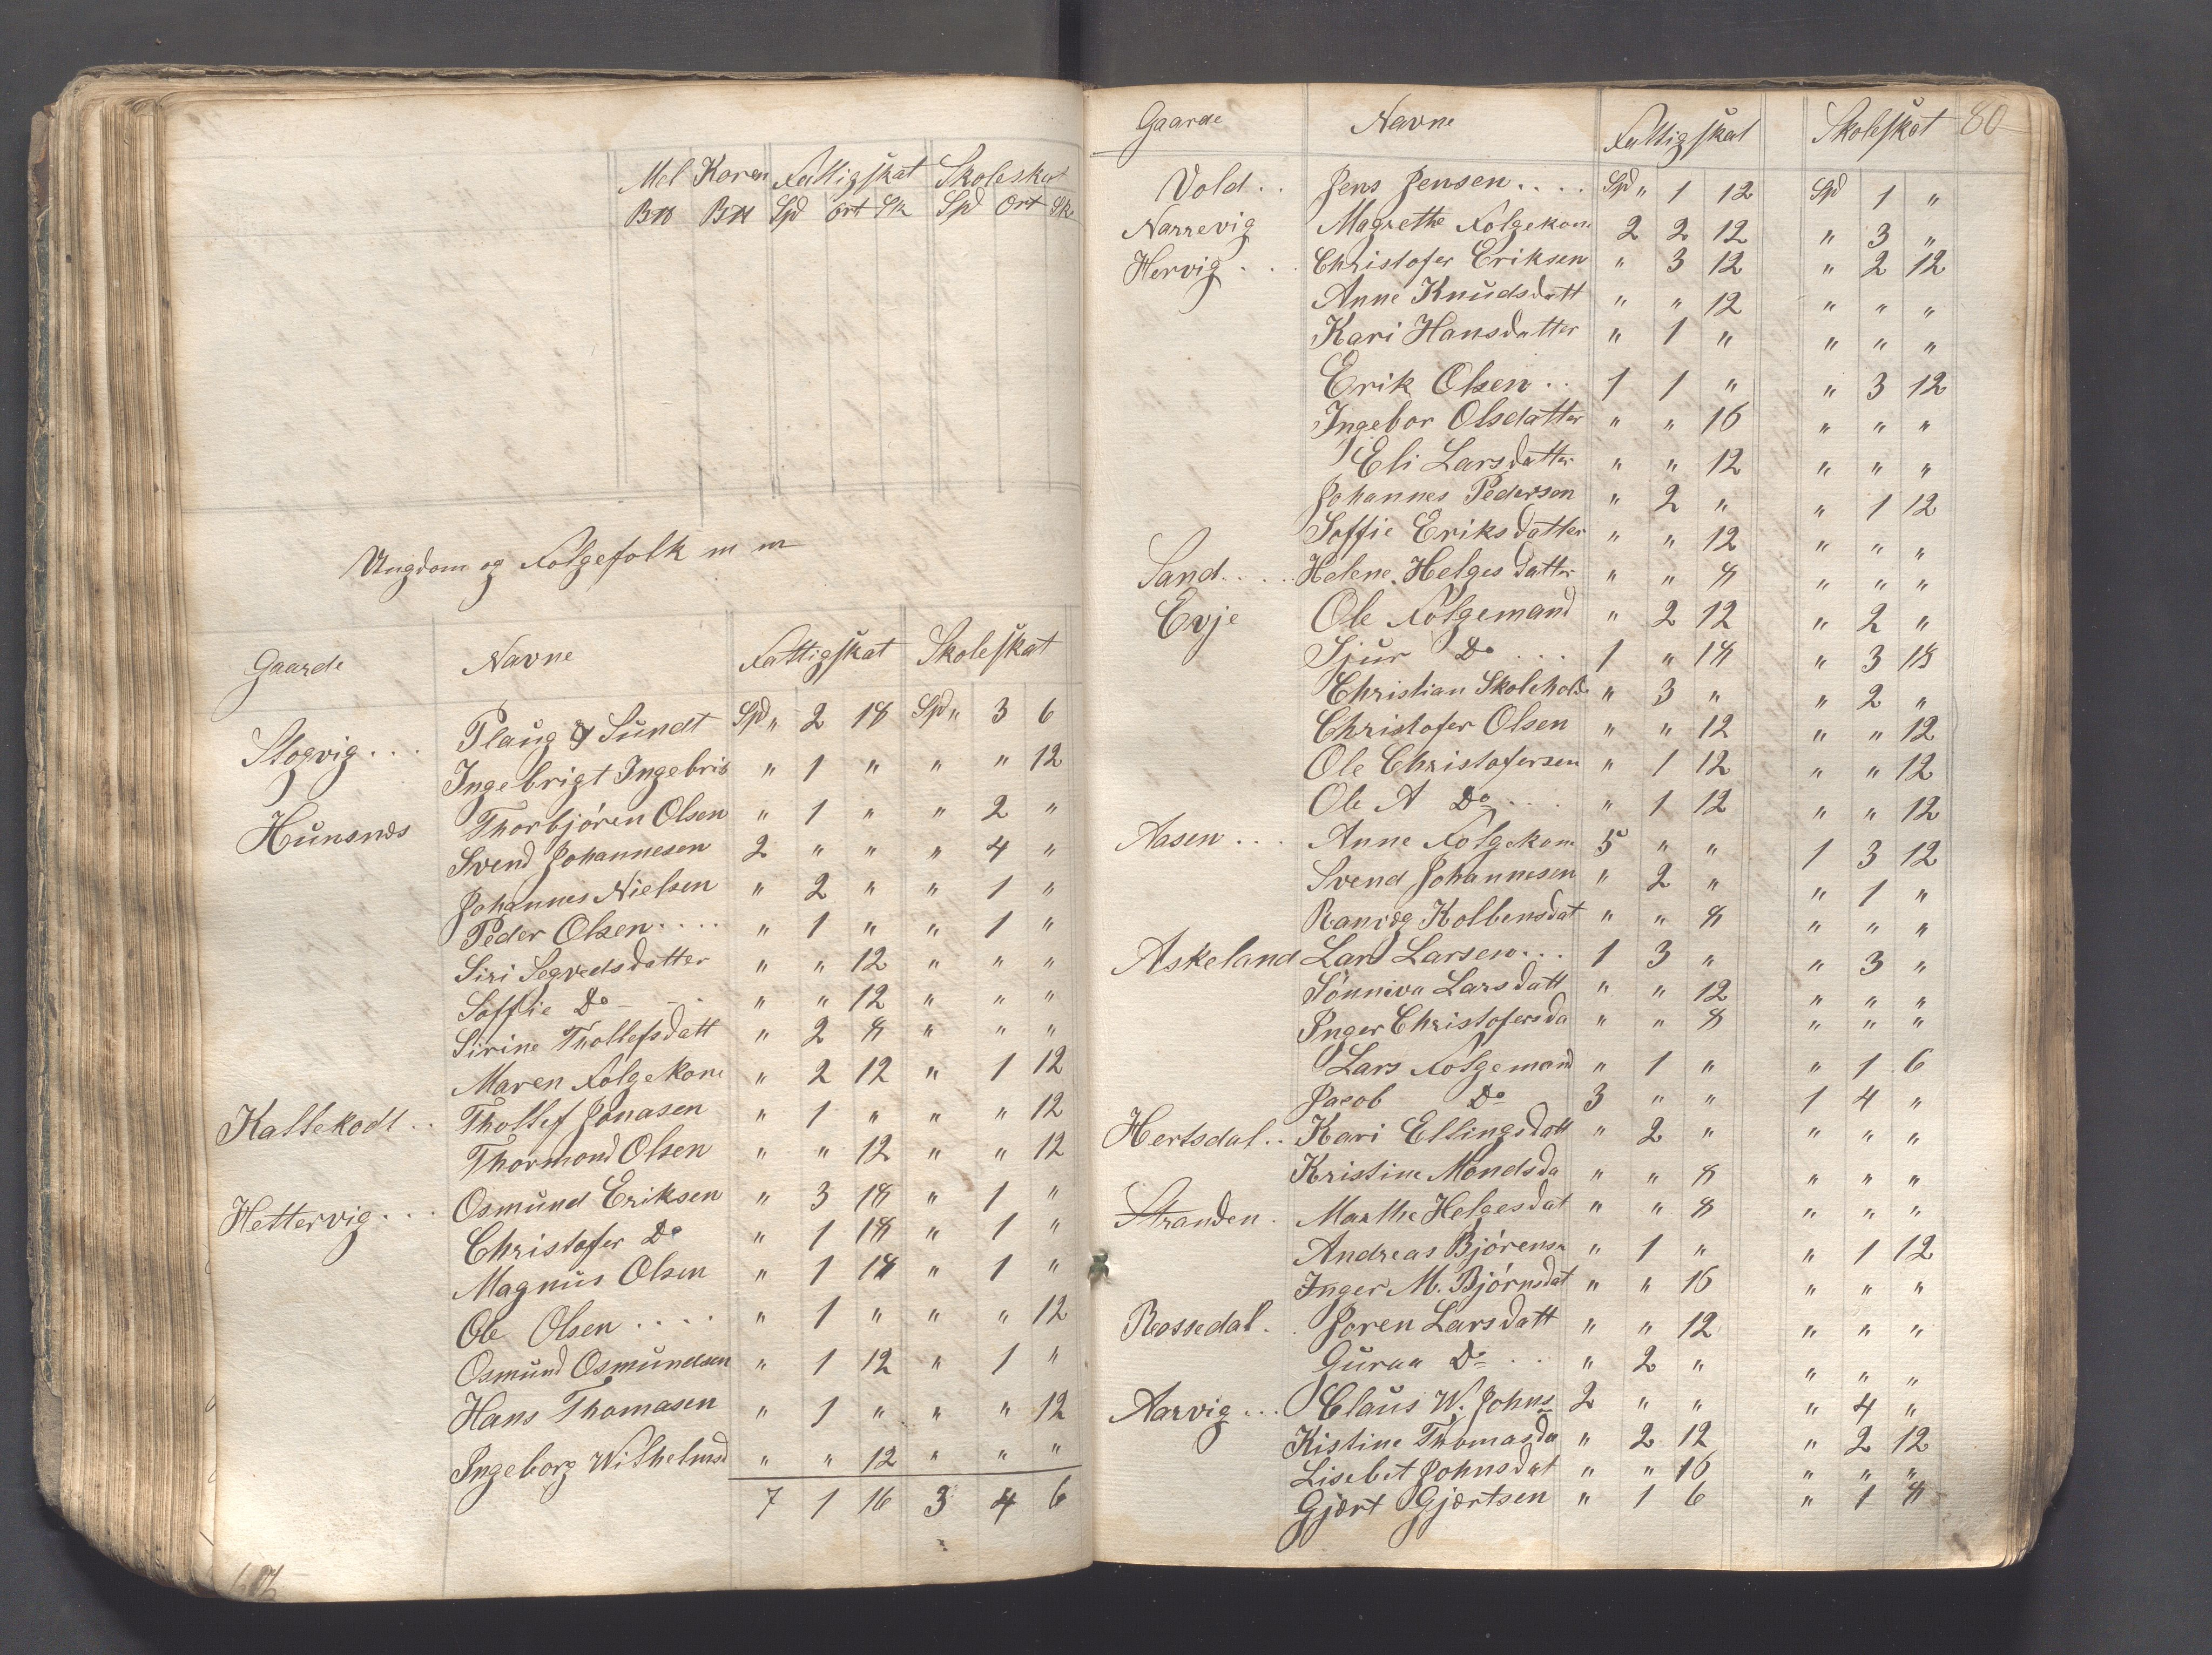 Mel Koren Fattigskat Skoleskat
Spd Ort Sk Spd Ort Sk
Ungdom og Folgefolk m m
Gaarde Navne Fattigskat Skoleskat
Stogvig... Plaug & Sundt Spd " 2 18 Spd " 3 6
Ingebrigt Ingebris " 1 " " " 12
Hunsnæs Thorbjören Olsen " 1 " " 2 "
Svend Johannesen 2 " " " 4 "
Johannes Nielsen " 2 " " 1 "
Peder Olsen.... " 1 " " 1 "
Siri Segvedsdatter " " 12 " " "
Soffie Do " " 12 " " "
Sirine Thollefsdatt " 2 8 " " "
Maren Folgekone " 2 12 " 1 12
Kallekodt.. Thollef Jonasen " 1 " " " 12
Thormond Olsen " " 12 " " 12
Hettervig... Osmund Eriksen " 3 18 " 1 "
Christofer Do " 1 18 " 1 "
Magnus Olsen " 1 18 " 1 "
Ole Olsen .... " 1 " " " 12
Osmund Osmundsen " 1 12 " 1 "
Hans Thomasen " 1 " " " 12
Ingeborg Wilhelmsd " " 12 " " "
7 1 16 3 4 6
Gaarde Navne Fattigskat Skoleskat 80
Vold.. Jens Jensen.... Spd " 1 12 Spd 1 "
Narrevig Magrethe Folgekone 2 2 12 " 3 "
Hervig... Christofer Eriksen " 3 12 " 2 12
Anne Knudsdatt " " 12 " " "
Kari Hansdatter " 1 " " " "
Erik Olsen.. 1 1 " " 3 12
Ingebor Olsdatter " " 16 " " "
Eli Larsdatter " " 12 " " "
Johannes Pedersen " 2 " " 1 12
Soffie Eriksdatter " " 12 " " "
Sand..... Helene Helgesdatter " " 8 " " "
Evje Ole Folgemand " 2 12 " 2 "
Sjur Do ... 1 " 18 " 3 18
Christian Skoleholde " 3 " " 2 "
Christofer Olsen " " 12 " " 12
Ole Christofersen " 1 12 " " 12
Ole A Do.... " 1 12 " " 12
Aasen... Anne Folgekone 5 " " 1 3 12
Svend Johannesen " 2 " " 1 "
Ranvæg Kolbensdat " " 8 " " "
Askeland Lars Larsen... 1 3 " " 3 "
Sönniva Larsdatt " " 12 " " "
Inger Christofersda " " 8 " " "
Lars Folgemand " 1 " " 1 6
Jacob Do 3 " " 1 4 "
Hertsdal.. Kari Ellingsdatt " 2 " " " "
Kristine Mondsda " " 8 " " "
Stranden. Marthe Helgesdat " " 8 " " "
Andreas Björensn " 1 " " 1 12
Inger M. Björnsdat " " 16 " " "
Rossedal.. Joren Larsdatt " " 12 " " "
Guraa Do .. " 2 " " " "
Aarvig... Claus W. Johns 2 " " " 4 "
Kistine Thomasda " 2 12 " 2 12
Lisebet Johnsdat " " 16 " " "
Gjert Gjertsen " 1 6 " 1 8